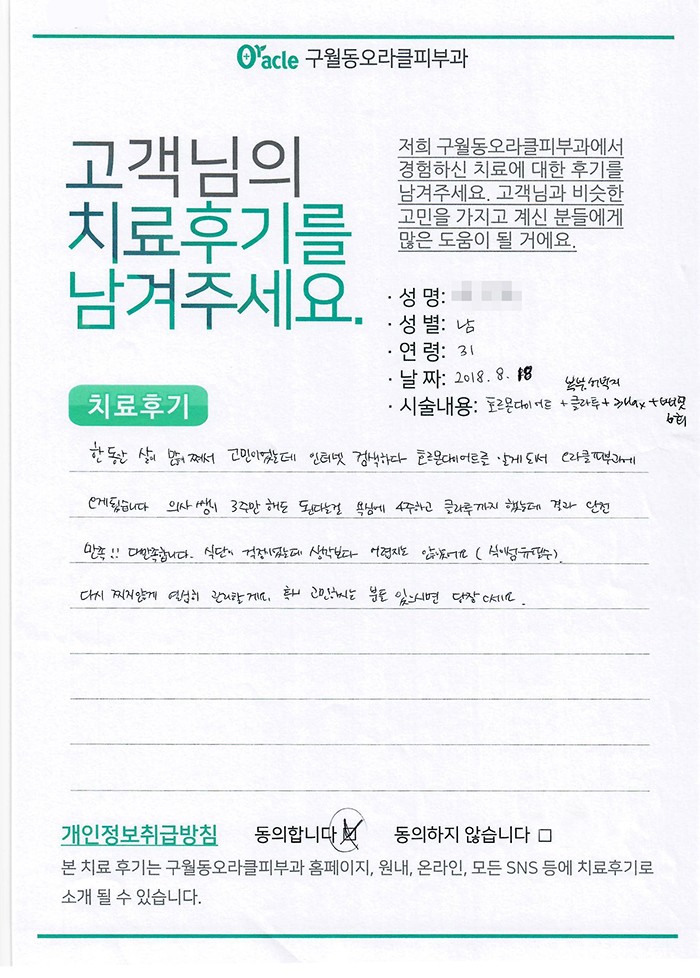 Oracle 구월동오라클피부과
고객님의
치료후기를
남겨주세요.
저희 구월동오라클피부과에서
경험하신 치료에 대한 후기를
남겨주세요. 고객님과 비슷한
고민을 가지고 계신 분들에게
많은 도움이 될 거에요.
· 성 명:
· 성 별: 남
· 연 령: 31
· 날 짜: 2018. 8. 18
복부, 허벅지
· 시술내용: 호르몬다이어트 + 클라투 +
6회
치료후기
한동안 살이 많이 쪄서 고민이었는데 인터넷 검색하다 호르몬다이어트를 알게되서 오라클피부과에
오게됬습니다 의사쌤이 3주만 해도 된다는걸 욕심에 4주하고 클라투까지 했는데 결과 완전
만족!! 대만족합니다. 식단이 걱정이었는데 생각보다 어렵지도 않았어요 (식이섬유필수).
다시 찌지않게 열심히 관리할게요, 혹시 고민하시는 분들 있으시면 당장 오세요.
개인정보취급방침 동의합니다 동의하지 않습니다
본 치료 후기는 구월동오라클피부과 홈페이지, 원내, 온라인, 모든 SNS 등에 치료후기로
소개 될 수 있습니다.